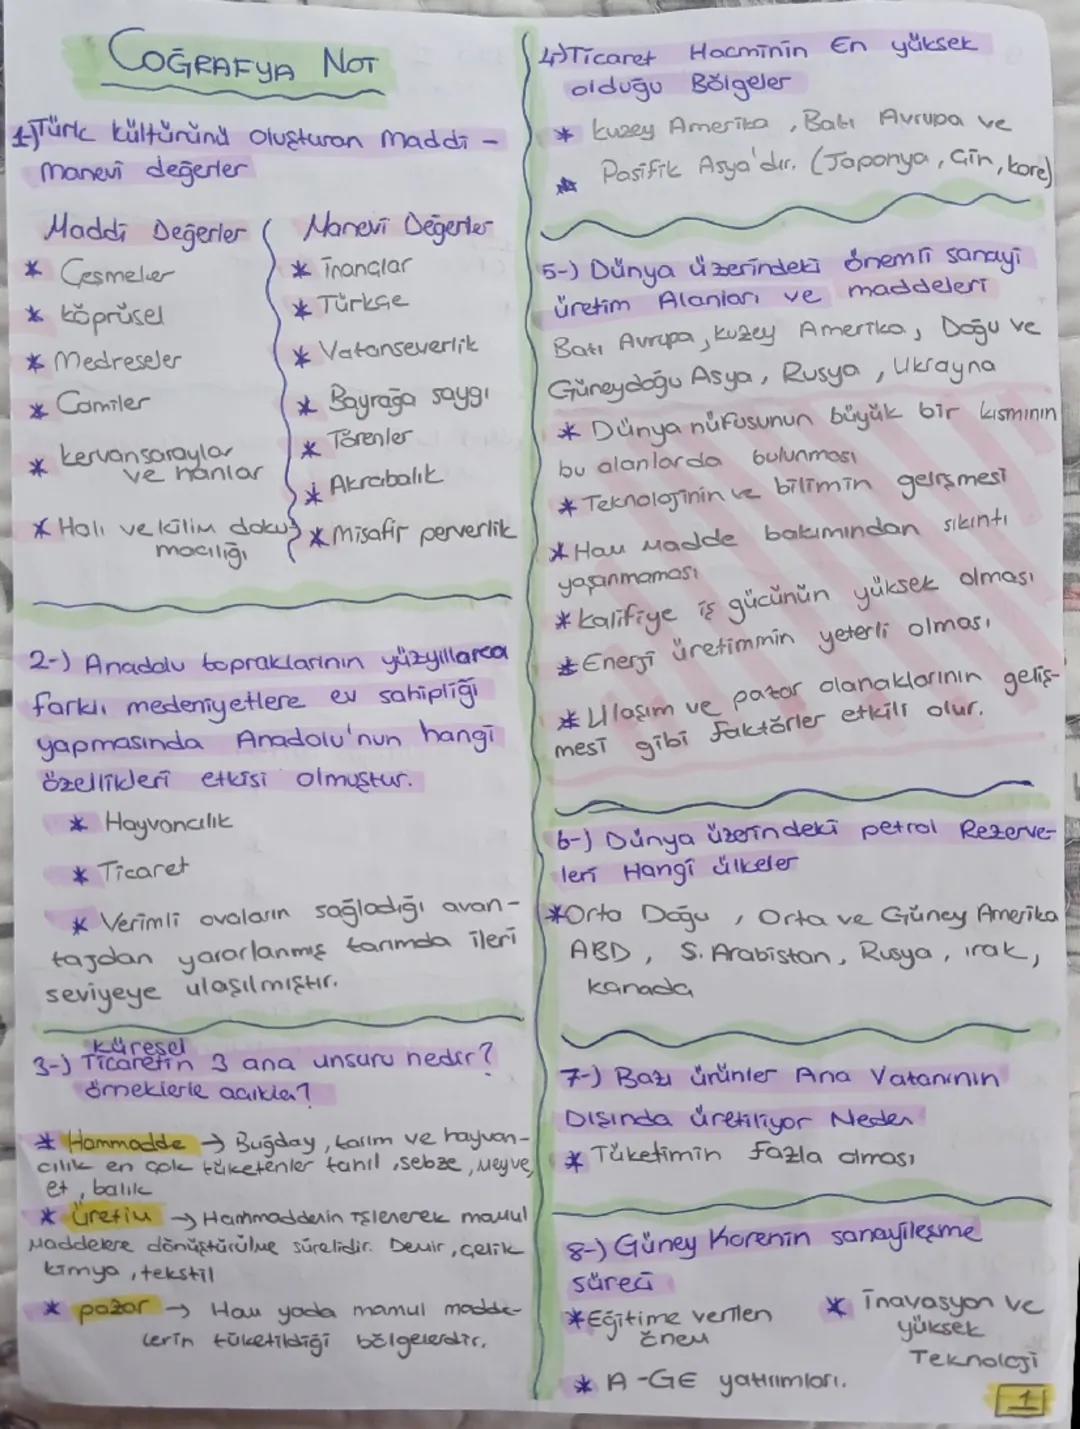 COĞRAFYA NOT
1-) Türk kültürünü oluşturan maddi -
manevi değerler
Maddi Değerler
* Çeşmeler
* köprüsel
* Medreseler
* Camiler
* kervansaraylar
ve hanlar
* Halı ve kilim doku-
macılığı
Manevi Değerler
* İnançlar
* Türkçe
* Vatanseverlik
* Bayrağa saygı
* Törenler
* Akrabalık
* Misafir perverlik
2-) Anadolu topraklarının yüzyıllarca
farklı medeniyetlere ev sahipliği
yapmasında Anadolu'nun hangi
özellikleri etkisi olmuştur.
* Hayvancılık
* Ticaret
* Verimli ovaların sağladığı avan-
tajdan yararlanmış tarımda ileri
seviyeye ulaşılmıştır.
küresel
3-) Ticaretin 3 ana unsuru nedir?
örneklerle açıkla?
* Hammadde → Buğday, tarım ve hayvan-
cılık en çok tüketenler tahıl, sebze, meyve,
et, balık
* üretim → Hammaddenin işlenerek mamul
maddelere dönüştürülme sürelidir. Demir, çelik
kimya, tekstil
* pazar → Ham yada mamul madde-
lerin tüketildiği bölgelerdir.
4-) Ticaret Hacminin En yüksek
olduğu Bölgeler
* kuzey Amerika, Batı Avrupa ve
* Pasifik Asya'dır. (Japonya, Çin, kore)
5-) Dünya üzerindeki önemli sanayi
üretim Alanları ve maddeleri
Batı Avrupa, kuzey Amerika, Doğu ve
Güneydoğu Asya, Rusya, Ukrayna
* Dünya nüfusunun büyük bir kısmının
bu alanlarda bulunması
* Teknolojinin ve bilimin gelişmesi
* Ham madde bakımından sıkıntı
yaşanmaması
* kalifiye iş gücünün yüksek olması
* Enerji üretimmin yeterli olması
* Ulaşım ve pazar olanaklarının geliş-
mesi gibi faktörler etkili olur.
6-) Dünya üzerindeki petrol Rezerve-
leri Hangi ülkeler
* Orta Doğu, Orta ve Güney Amerika
ABD, S. Arabistan, Rusya, ırak,
kanada
7-) Bazı ürünler Ana Vatanının
Dışında üretiliyor Neden
* Tüketimin fazla olması
8-) Güney Korenin sanayileşme
süreci
* Eğitime verilen
önem
* inavasyon ve
yüksek
Teknoloji
* A-GE yatırımları.
1